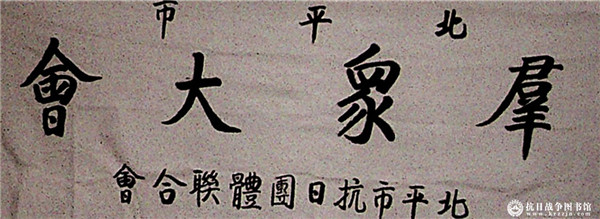 北平市
羣眾大會
北平市抗日團體聯合會
抗日战争图书馆
www.krzzjn.com